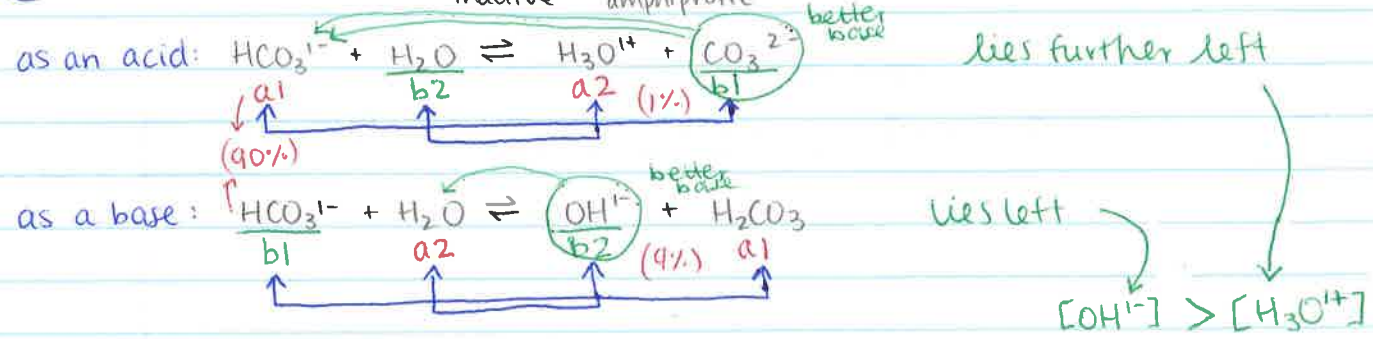 better
base
as an acid: HCO₃¹⁻ + H₂O ⇌ H₃O¹⁺ + CO₃²⁻ lies further left
a1 b2 a2 (1%) b1
(90%)
better
base
as a base: HCO₃¹⁻ + H₂O ⇌ OH¹⁻ + H₂CO₃ lies left
b1 a2 b2 (9%) a1
[OH¹⁻] > [H₃O¹⁺]